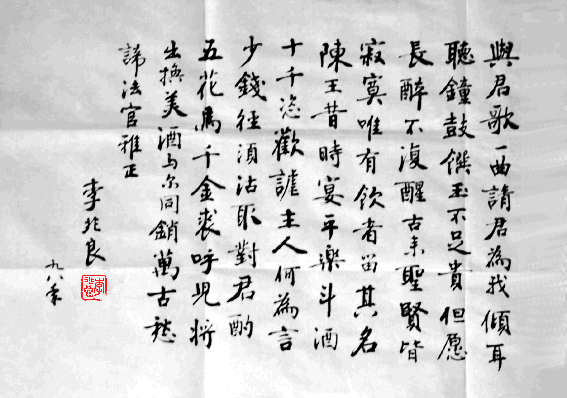 與君歌一曲請君為我傾耳
聽鐘鼓饌玉不足貴但愿
長醉不復醒古来聖賢皆
寂寞唯有飲者留其名
陳王昔時宴平樂斗酒
十千恣歡謔主人何為言
少錢徑須沽取對君酌
五花馬千金裘呼兒將
出換美酒与尔同銷萬古愁
諦法官雅正
李兆良
九八年